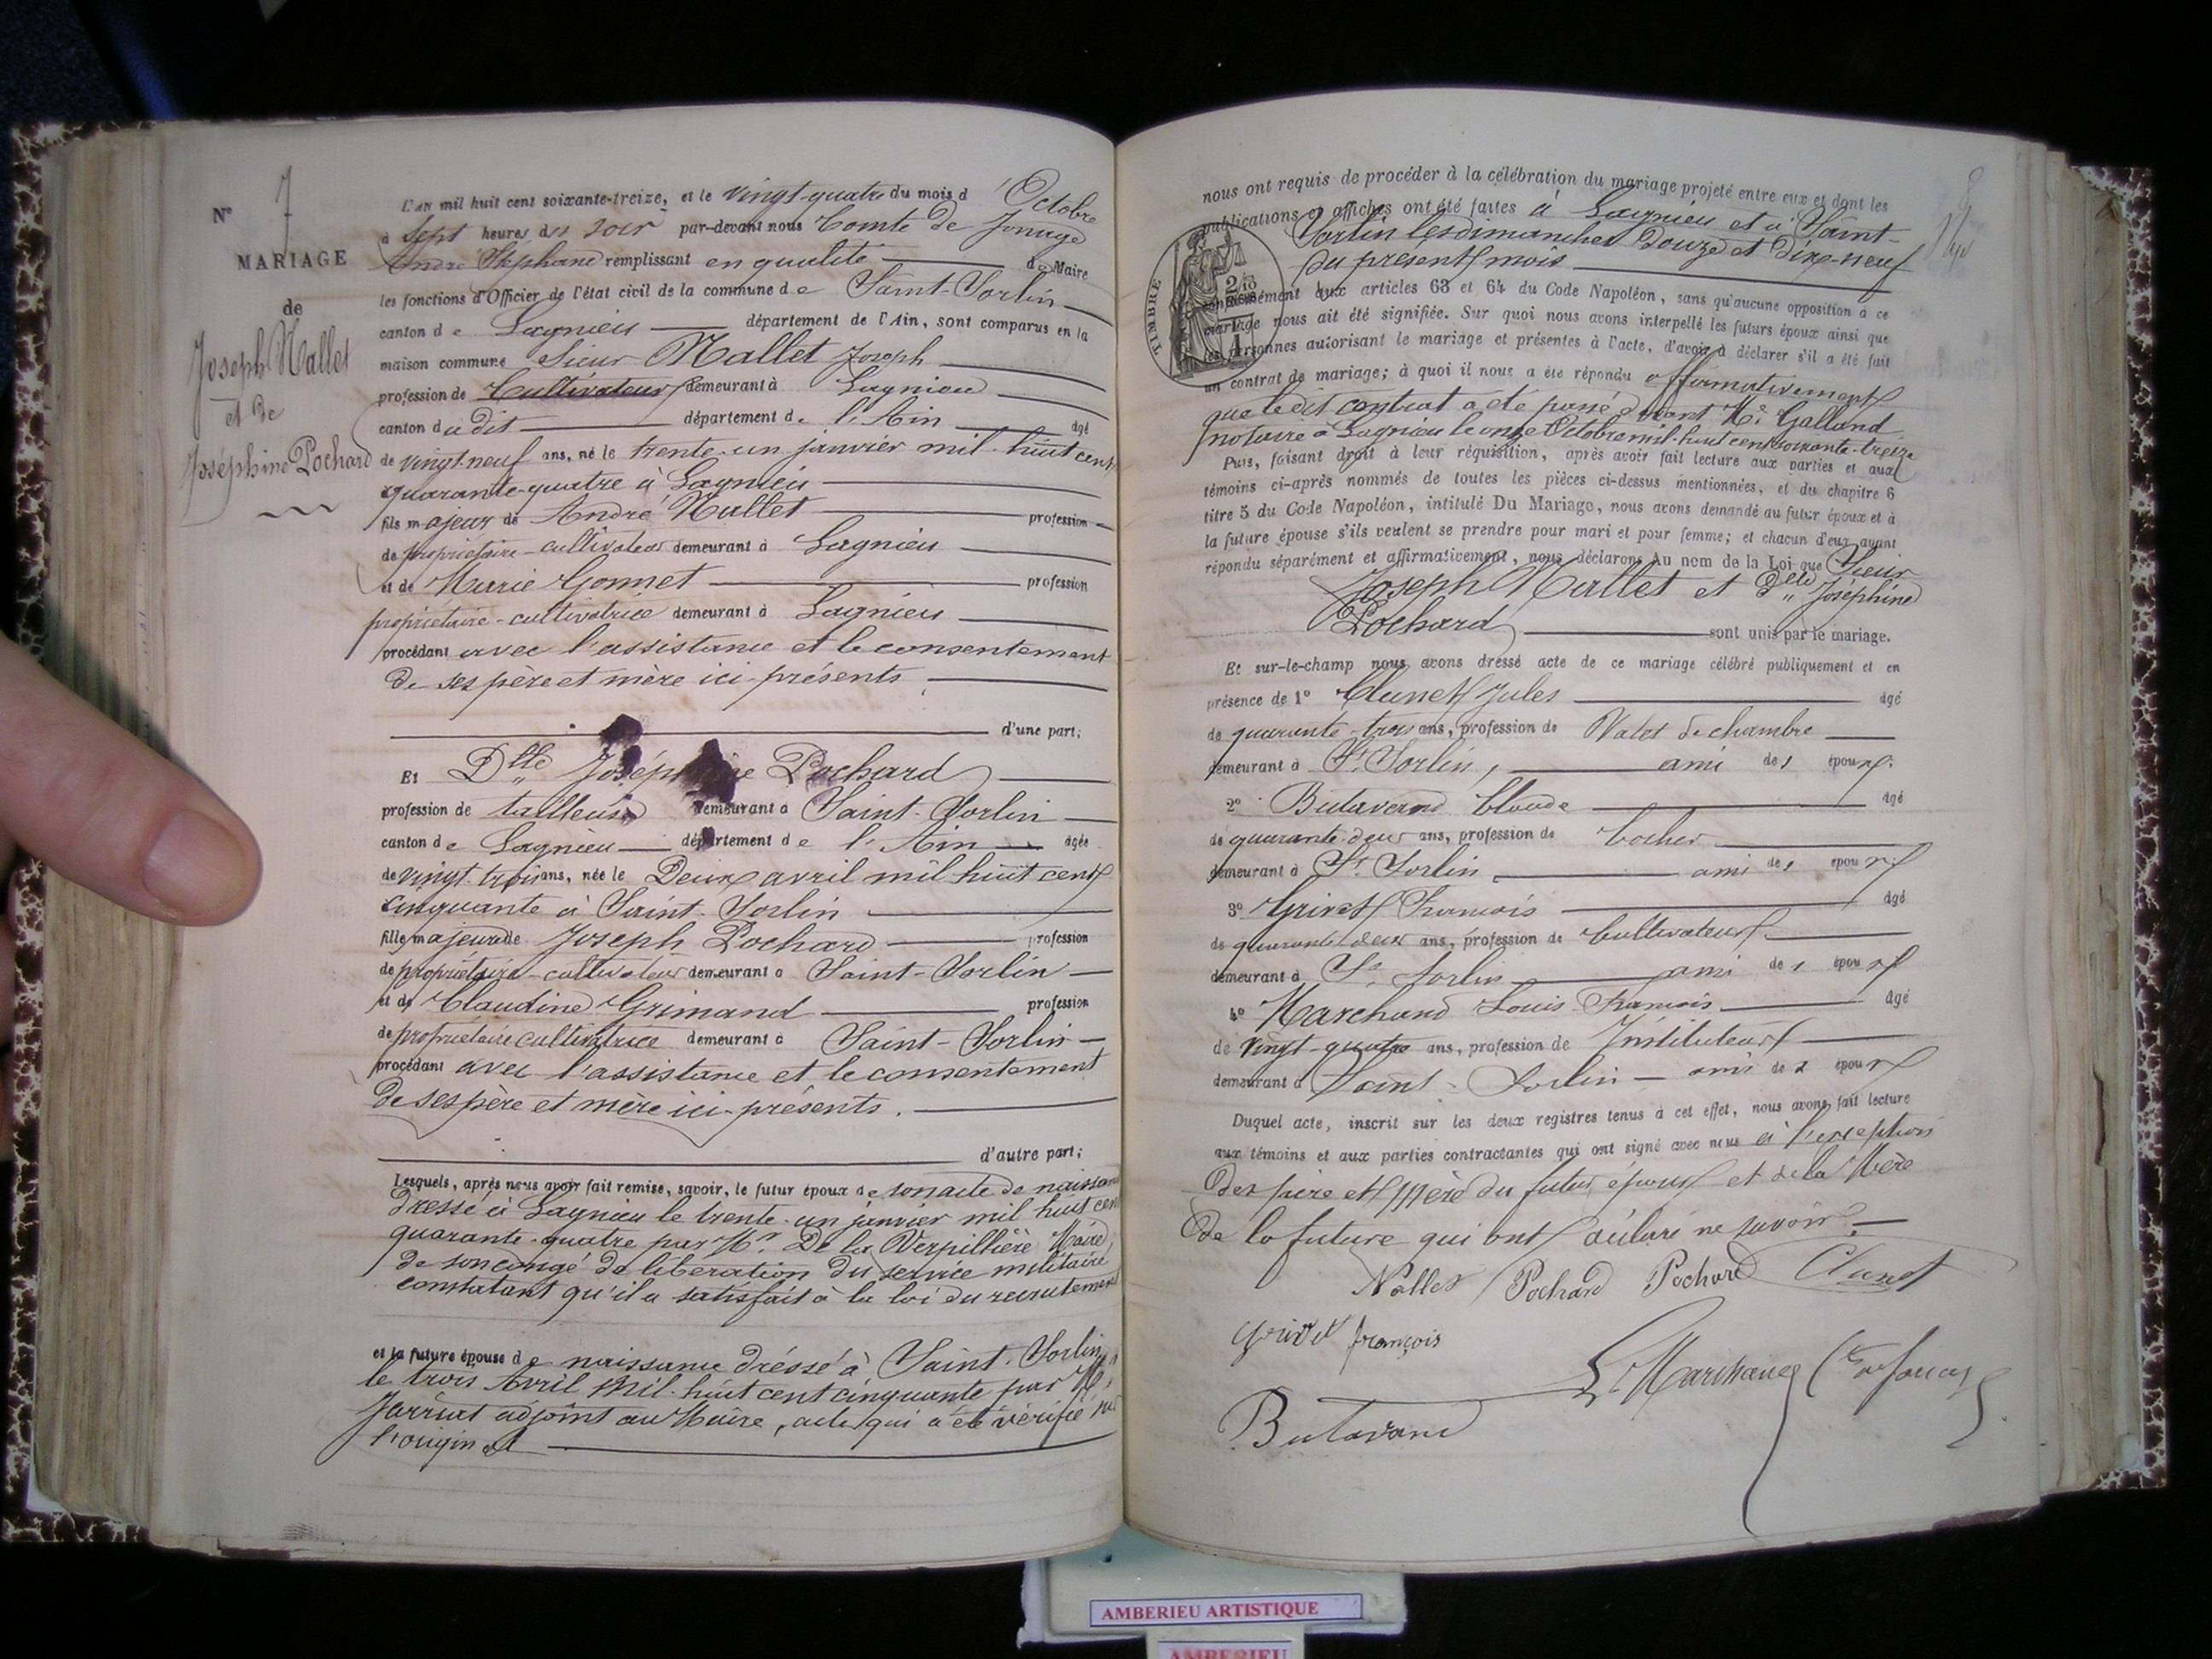 N° 7
MARIAGE
de
Joseph Nallet
et de
Joséphine Pochard
L'an mil huit cent soixante-treize, et le vingt-quatre du mois d'Octobre
à sept heures du soir par-devant nous Comte de Jonage
André Stéphane remplissant en qualité de Maire
les fonctions d'Officier de l'état civil de la commune de Saint-Sorlin
canton de Lagnieu département de l'Ain, sont comparus en la
maison commune Sieur Nallet Joseph
profession de Cultivateur demeurant à Lagnieu
canton dudit département de l'Ain âgé
de vingt-neuf ans, né le trente-un janvier mil-huit cent
quarante-quatre à Lagnieu
fils majeur de André Nallet profession
de propriétaire-cultivateur demeurant à Lagnieu
et de Marie Gonnet profession
propriétaire-cultivatrice demeurant à Lagnieu
procédant avec l'assistance et le consentement
de ses père et mère ici-présents
d'une part;
Et Dlle Joséphine Pochard
profession de tailleuse demeurant à Saint-Sorlin
canton de Lagnieu département de l'Ain âgée
de vingt-trois ans, née le Deux avril mil huit cent
cinquante à Saint-Sorlin
fille majeure de Joseph Pochard profession
de propriétaire-cultivateur demeurant à Saint-Sorlin
et de Claudine Grimand profession
de propriétaire cultivatrice demeurant à Saint-Sorlin
procédant avec l'assistance et le consentement
de ses père et mère ici-présents.
d'autre part;
Lesquels, après nous avoir fait remise, savoir, le futur époux de son acte de naissance
dressé à Lagnieu le trente-un janvier mil huit cent
quarante-quatre par Mr. De la Verpillière Maire,
de son congé de libération du service militaire
constatant qu'il a satisfait à la loi du recrutement
et la future épouse de naissance dréssé à Saint-Sorlin
le trois Avril mil-huit cent cinquante par Mr.
Jarrint adjoint au Maire, acte qui a été vérifié sur
l'original
nous ont requis de procéder à la célébration du mariage projeté entre eux et dont les
publications et affiches ont été faites à Lagnieu et à Saint-
Sorlin les dimanches Douze et dix-neuf
du présent mois
TIMBRE
conformément aux articles 63 et 64 du Code Napoléon, sans qu'aucune opposition à ce
mariage nous ait été signifiée. Sur quoi nous avons interpellé les futurs époux ainsi que
les personnes autorisant le mariage et présentes à l'acte, d'avoir à déclarer s'il a été fait
un contrat de mariage; à quoi il nous a été répondu affirmativement
que ledit contrat a été passé devant Me. Galland
notaire à Lagnieu le onze Octobre mil-huit cent soixante-treize
Puis, faisant droit à leur réquisition, après avoir fait lecture aux parties et aux
témoins ci-après nommés de toutes les pièces ci-dessus mentionnées, et du chapitre 6
titre 5 du Code Napoléon, intitulé Du Mariage, nous avons demandé au futur époux et à
la future épouse s'ils veulent se prendre pour mari et pour femme; et chacun d'eux ayant
répondu séparément et affirmativement, nous déclarons Au nom de la Loi que Sieur
Joseph Nallet et Dlle Joséphine
Pochard sont unis par le mariage.
Et sur-le-champ nous avons dressé acte de ce mariage célébré publiquement et en
présence de 1° Clunet Jules âgé
de quarante-trois ans, profession de Valet de chambre
demeurant à St. Sorlin, ami des époux;
2° Butavand Claude âgé
de quarante-deux ans, profession de Cocher
demeurant à St. Sorlin, ami des époux
3° Grivet François âgé
de quarante deux ans, profession de Cultivateur
demeurant à St. Sorlin ami des époux
4° Marchand Louis François âgé
de vingt-quatre ans, profession de Instituteur
demeurant à Saint-Sorlin ami des époux
Duquel acte, inscrit sur les deux registres tenus à cet effet, nous avons fait lecture
aux témoins et aux parties contractantes qui ont signé avec nous à l'exception
des père et mère du futur époux et de la Mère
de la future qui ont déclaré ne savoir
Nallet Pochard Pochard Clunet
Grivet françois
L. Marchand Cte de Jonage
Butavand
AMBERIEU ARTISTIQUE
AMBERIEU